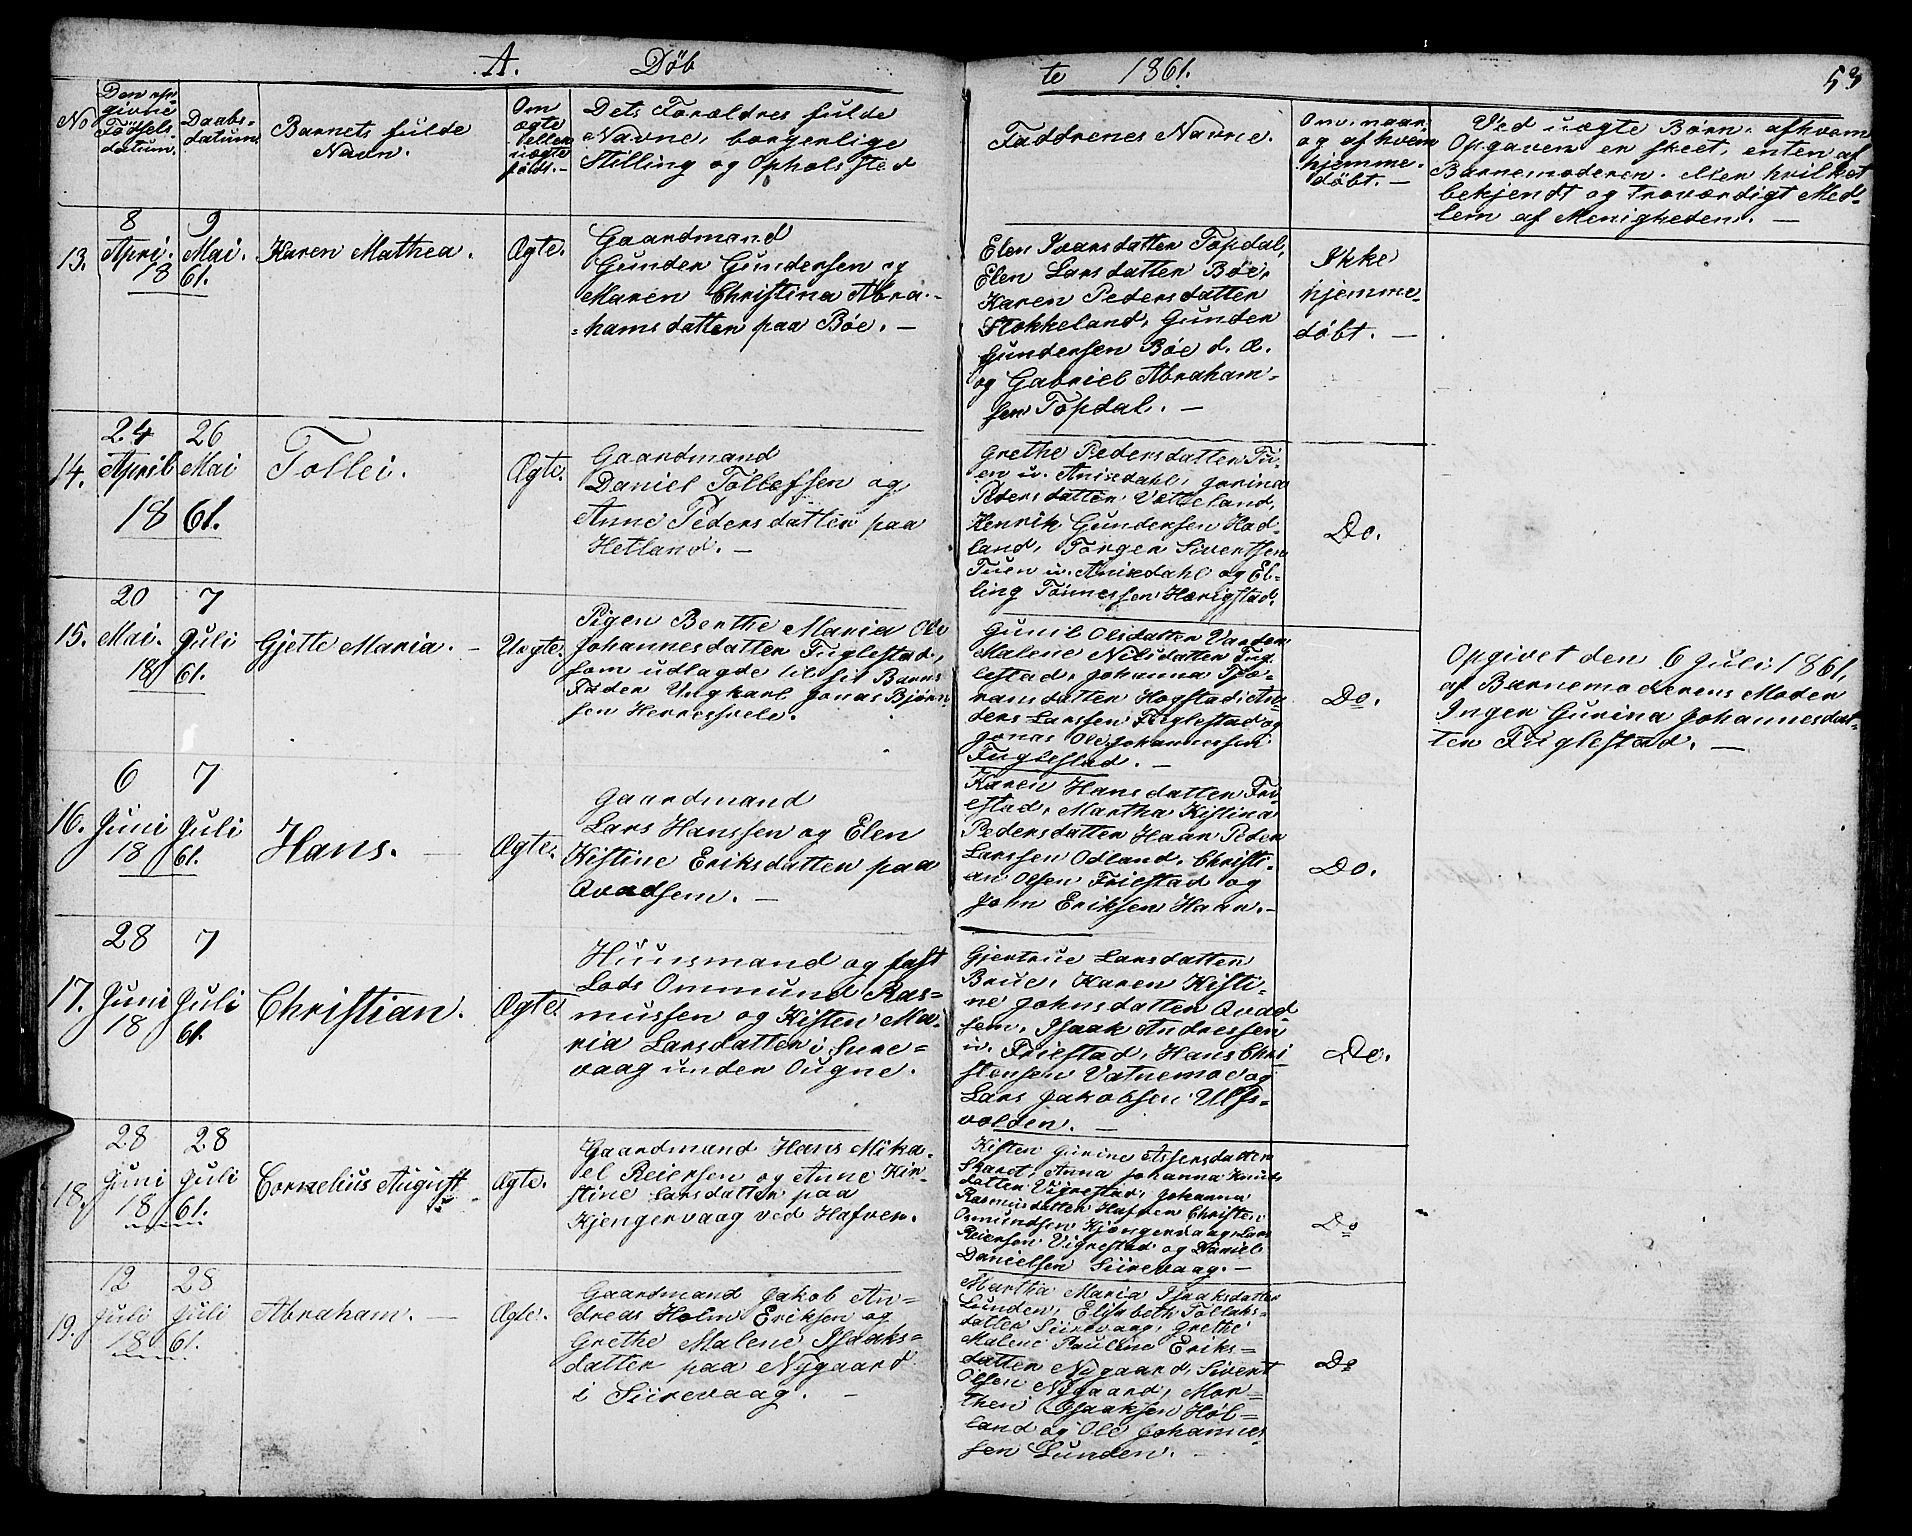 A. Døb
te 1861.
53
No
Den opgivne Fødselsdatum.
Daabsdatum
Barnets fulde Navn.
Om ægte eller uægte født. —
Dets Forældres fulde Navne, borgerlige Stilling og Opholssted
Faddrenes Navne.
Om, naar og af hvem hjemmedøbt. —
Ved uægte Børn, afhvem
Opgaven er skeet, enten af
Barnemoderen eller hvilket
bekjendt og troværdigt Med-
lem af Menigheden. —
13.
8 April. 18
9 Mai. 61.
Karen Mathea.
Ægte.
Gaardmand
Gunder Gundersen og
Maren Christina Abra-
hamsdatter paa Bøe. —
Elen Ivarsdatter Topdal,
Elen Larsdatter Bøe,
Karen Pedersdatter
Stokkeland, Gunder
Gundersen Bøe d. Æ.
og Gabriel Abraham-
sen Topdal. —
Ikke
hjemme-
døbt. —
14.
24 April 18
26 Mai 61.
Tollei.
Ægte.
Gaardmand
Daniel Tollefsen og
Anne Pedersdatter paa
Hetland. —
Grethe Pedersdatter Tu-
en u. Anisdahl, Gorina
Pedersdatter Vetteland,
Henrik Gundersen Had-
land, Torger Sivertsen
Tuen u. Anisdahl og El-
ling Tønnessen Hærigstad.
Do.
15.
20 Mai. 18
7 Juli 61.
Gjette Maria. —
Uægte.
Pigen Berthe Maria Ole
Johannesdatter Fuglestad,
som udlagde til sit Barns
Fader Ungkarl Jonas Bjørn-
sen Herresvele.
Gunil Olsdatter Varden
Malene Nilsdatter Fug-
lestad, Johanna Tjo-
ramsdatter Hogstad, An-
ders Larssen Fuglestad og
Jonas Ole Johannessen
Fuglestad. —
Do.
Opgivet den 6 Juli 1861,
af Barnemoderens Moder
Inger Gurina Johannesdat-
ter Fuglestad. —
16.
6 Juni 18
7 Juli 61.
Hans. —
Ægte.
Gaardmand
Lars Hanssen og Elen
Kistine Eriksdatter paa
Qvadsem. —
Karen Hansdatter Fri-
estad, Martha Kistina
Pedersdatter Haar Peder
Larssen Odland, Christi-
an Olsen Friestad og
John Eriksen Haar. —
Do.
17.
28 Juni 18
7 Juli 61.
Christian.
Ægte.
Huusmand og fast
Lods Ommund Ras-
mussen og Kisten Ma-
ria Larsdatter i Sire-
vaag under Ougne.
Gjertrue Larsdatter
Brue, Karen Kisti-
ne Johnsdatter Qvad
sem, Isaak Andressen
u. Friestad, Hans Chri
stensen Vatnemoe og
Lars Jakobsen Ulfs-
volden. —
Do.
18.
28 Juni 18
28 Juli 61.
Cornelius August
Ægte.
Gaardmand Hans Mika-
el Reiersen og Anne Kir-
stine Larsdatter paa
Kjengervaag ved Hafren.
Kisten Gurine Assersdatter
Skaret, Anna Johanna Knuds
datter Vigrestad, Johanna
Rasmusdatter Hafren Christen
Osmundsen Kjængervaag, Lars
Reiersen Vigrestad og Daniel
Danielsen Siirevaag. —
Do
19.
12 Juli 18
28 Juli 61.
Abraham. —
Ægte.
Gaardmand Jakob An-
dreas Holm Eriksen og
Grethe Malene Isaaks-
datter paa Nygaard
i Siirevaag. —
Martha Maria Isaaksdatter
Lunden, Elisabeth Tollaks-
datter Siirevaag, Grethe
Malene Pauline Eriks-
datter Nygaard, Sivert
Olsen Nygaard, Mor-
then Isaaksen Høl-
land og Ole Johannes-
sen Lunden. —
Do